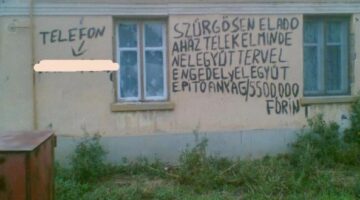 TELEFON
SZÜRGÖSEN ELADO
AHÁZ TELEKELMINDE
NELEGYÜT TERVEL
ENGEDELYELEGYÜT
EPITÖANYAG/5500,000
FORINT